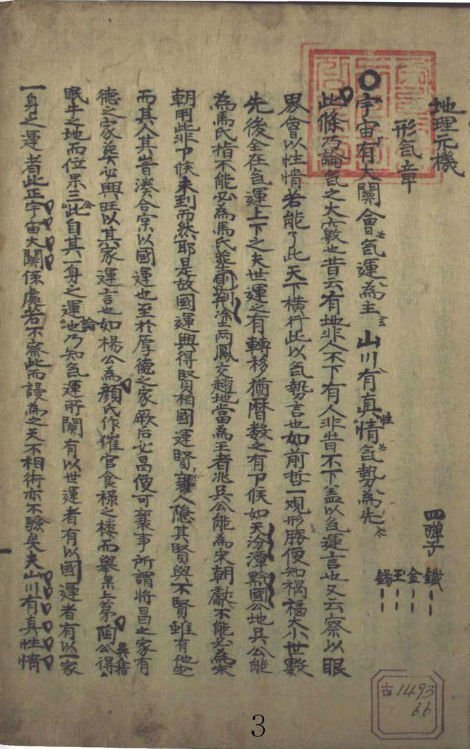 地理元機
形氣章
宇宙有大關會氣運為主 山川有真情氣勢為先
此條乃論氣之大數也昔云有地非人不下有人非昔不下盖以氣運言也又云察以眼
界會以性情若能了此天下橫行此以氣勢言也如前哲一觀形勝便知禍福大小世數
先後全在氣運上下之夫世運之有轉移猶曆数之有下候如天汾潭黔國公地吳公能
為馬氏指不能必為馬氏塟 两鳳交趨地當為王者兆吳公能為宋朝獻不能必為宋
朝用此非下候未到而然耶是故國運興得賢相國運賢人隐其賢與不賢雖有他
而其人其昔湊合宗以國運也至於厚德之家厥后必昌便可 事所謂將昌之家有
德之家奠必興旺以其家運言也如楊公為顏氏作催官食祿之 而 上第陶公得
眠牛之地而位 三 此自其一身之運 也乃知氣運所關有以世運者有以國運者有以一家
一身之運者此正宇宙大關係處若不察此而謾為之夫不相術亦不驗矣夫山川有真性情
四
鐵
金
玉
錫
古1493
66
3